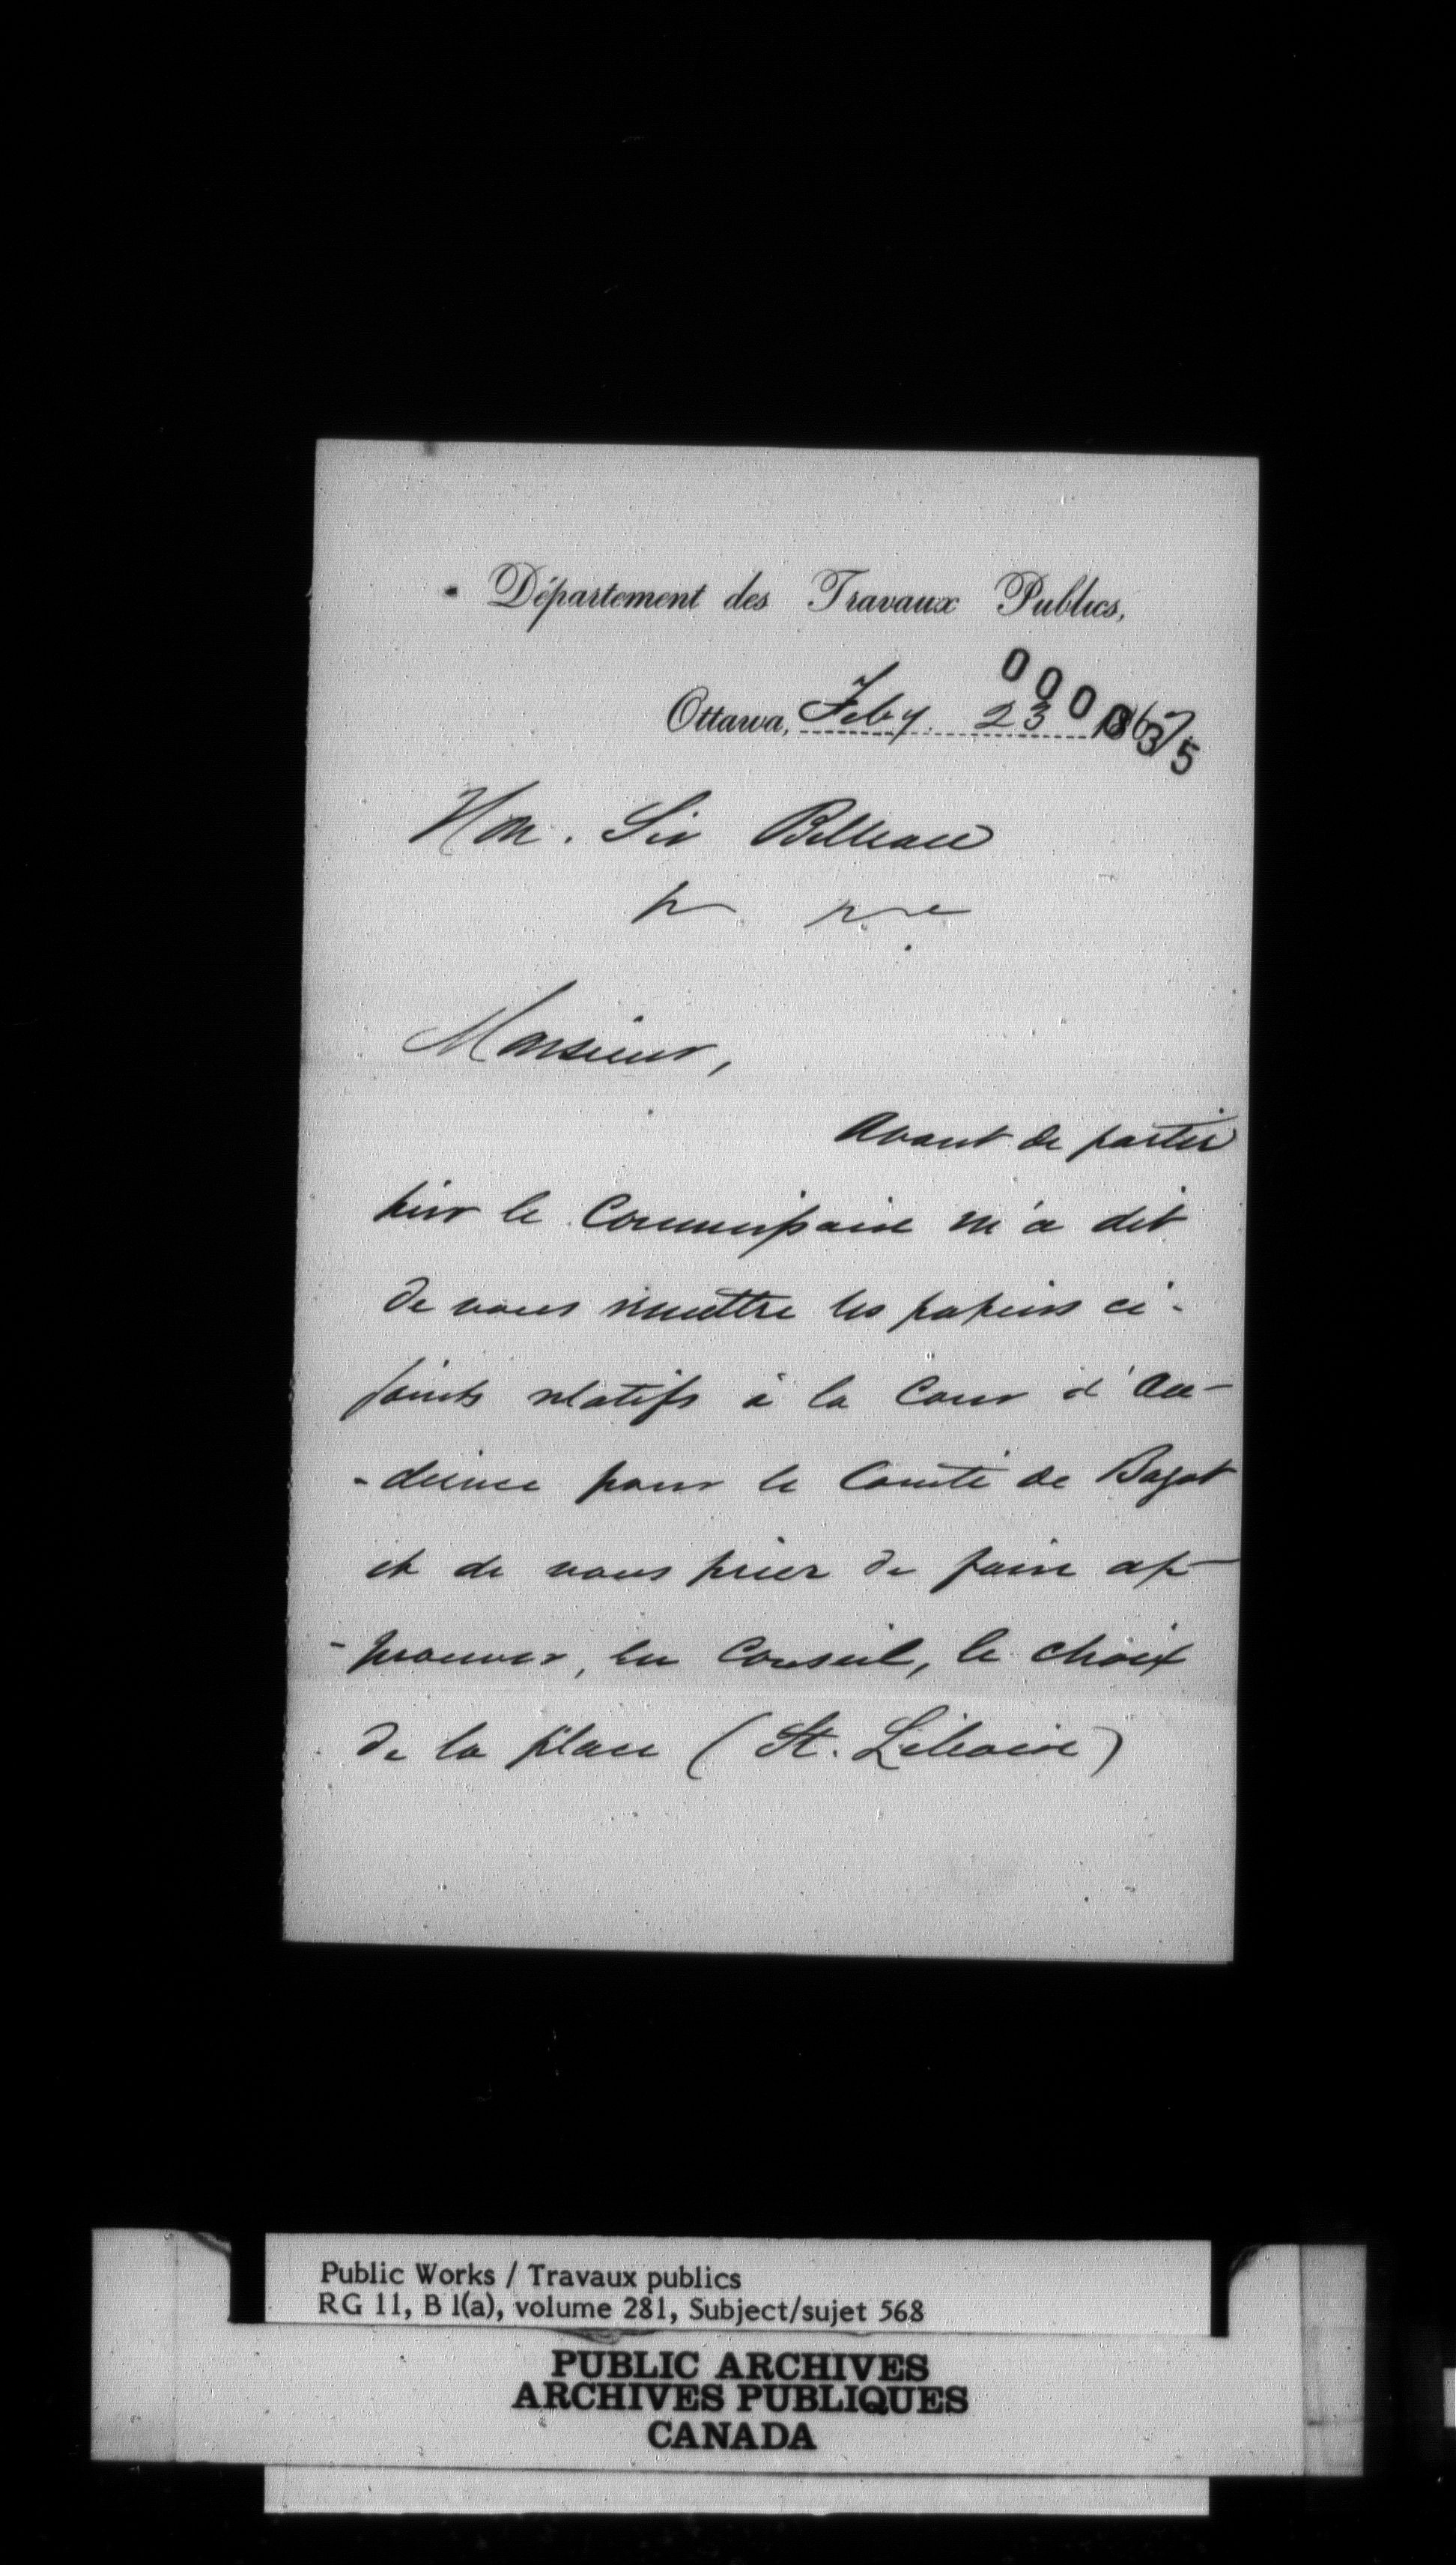 Département des Travaux Publics,
000035
Ottawa, Feby. 23 1867
Hon. Sir Belleau
Monsieur,
Avant de partir
hier le Commissaire m'a dit
de vous remettre les papiers ci-
joints relatifs à la Cour d'Au-
-dience pour le Comté de Bagot
et de vous prier de faire ap-
-prouver, en Conseil, le choix
de la place (St. Liboire)
Public Works / Travaux publics
RG 11, B 1(a), volume 281, Subject/sujet 568
PUBLIC ARCHIVES
ARCHIVES PUBLIQUES
CANADA